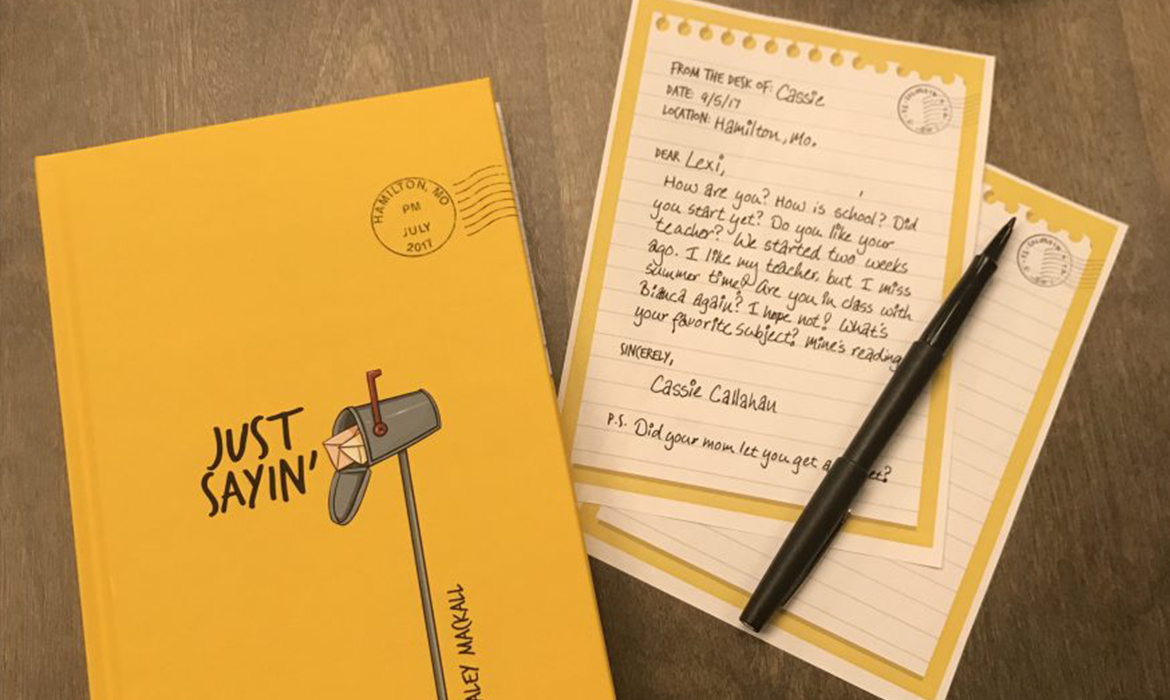 HAMILTON, MO
PM
JULY
2017
JUST
SAYIN'
ALEY MACKALL
FROM THE DESK OF: Cassie
DATE: 9/5/17
LOCATION: Hamilton, Mo.
DEAR Lexi,
How are you? How is school? Did
you start yet? Do you like your
teacher? We started two weeks
ago. I like my teacher, but I miss
summer time! Are you in class with
Bianca again? I hope not! What's
your favorite subject? Mine's reading
SINCERELY,
Cassie Callahan
P.S. Did your mom let you get a